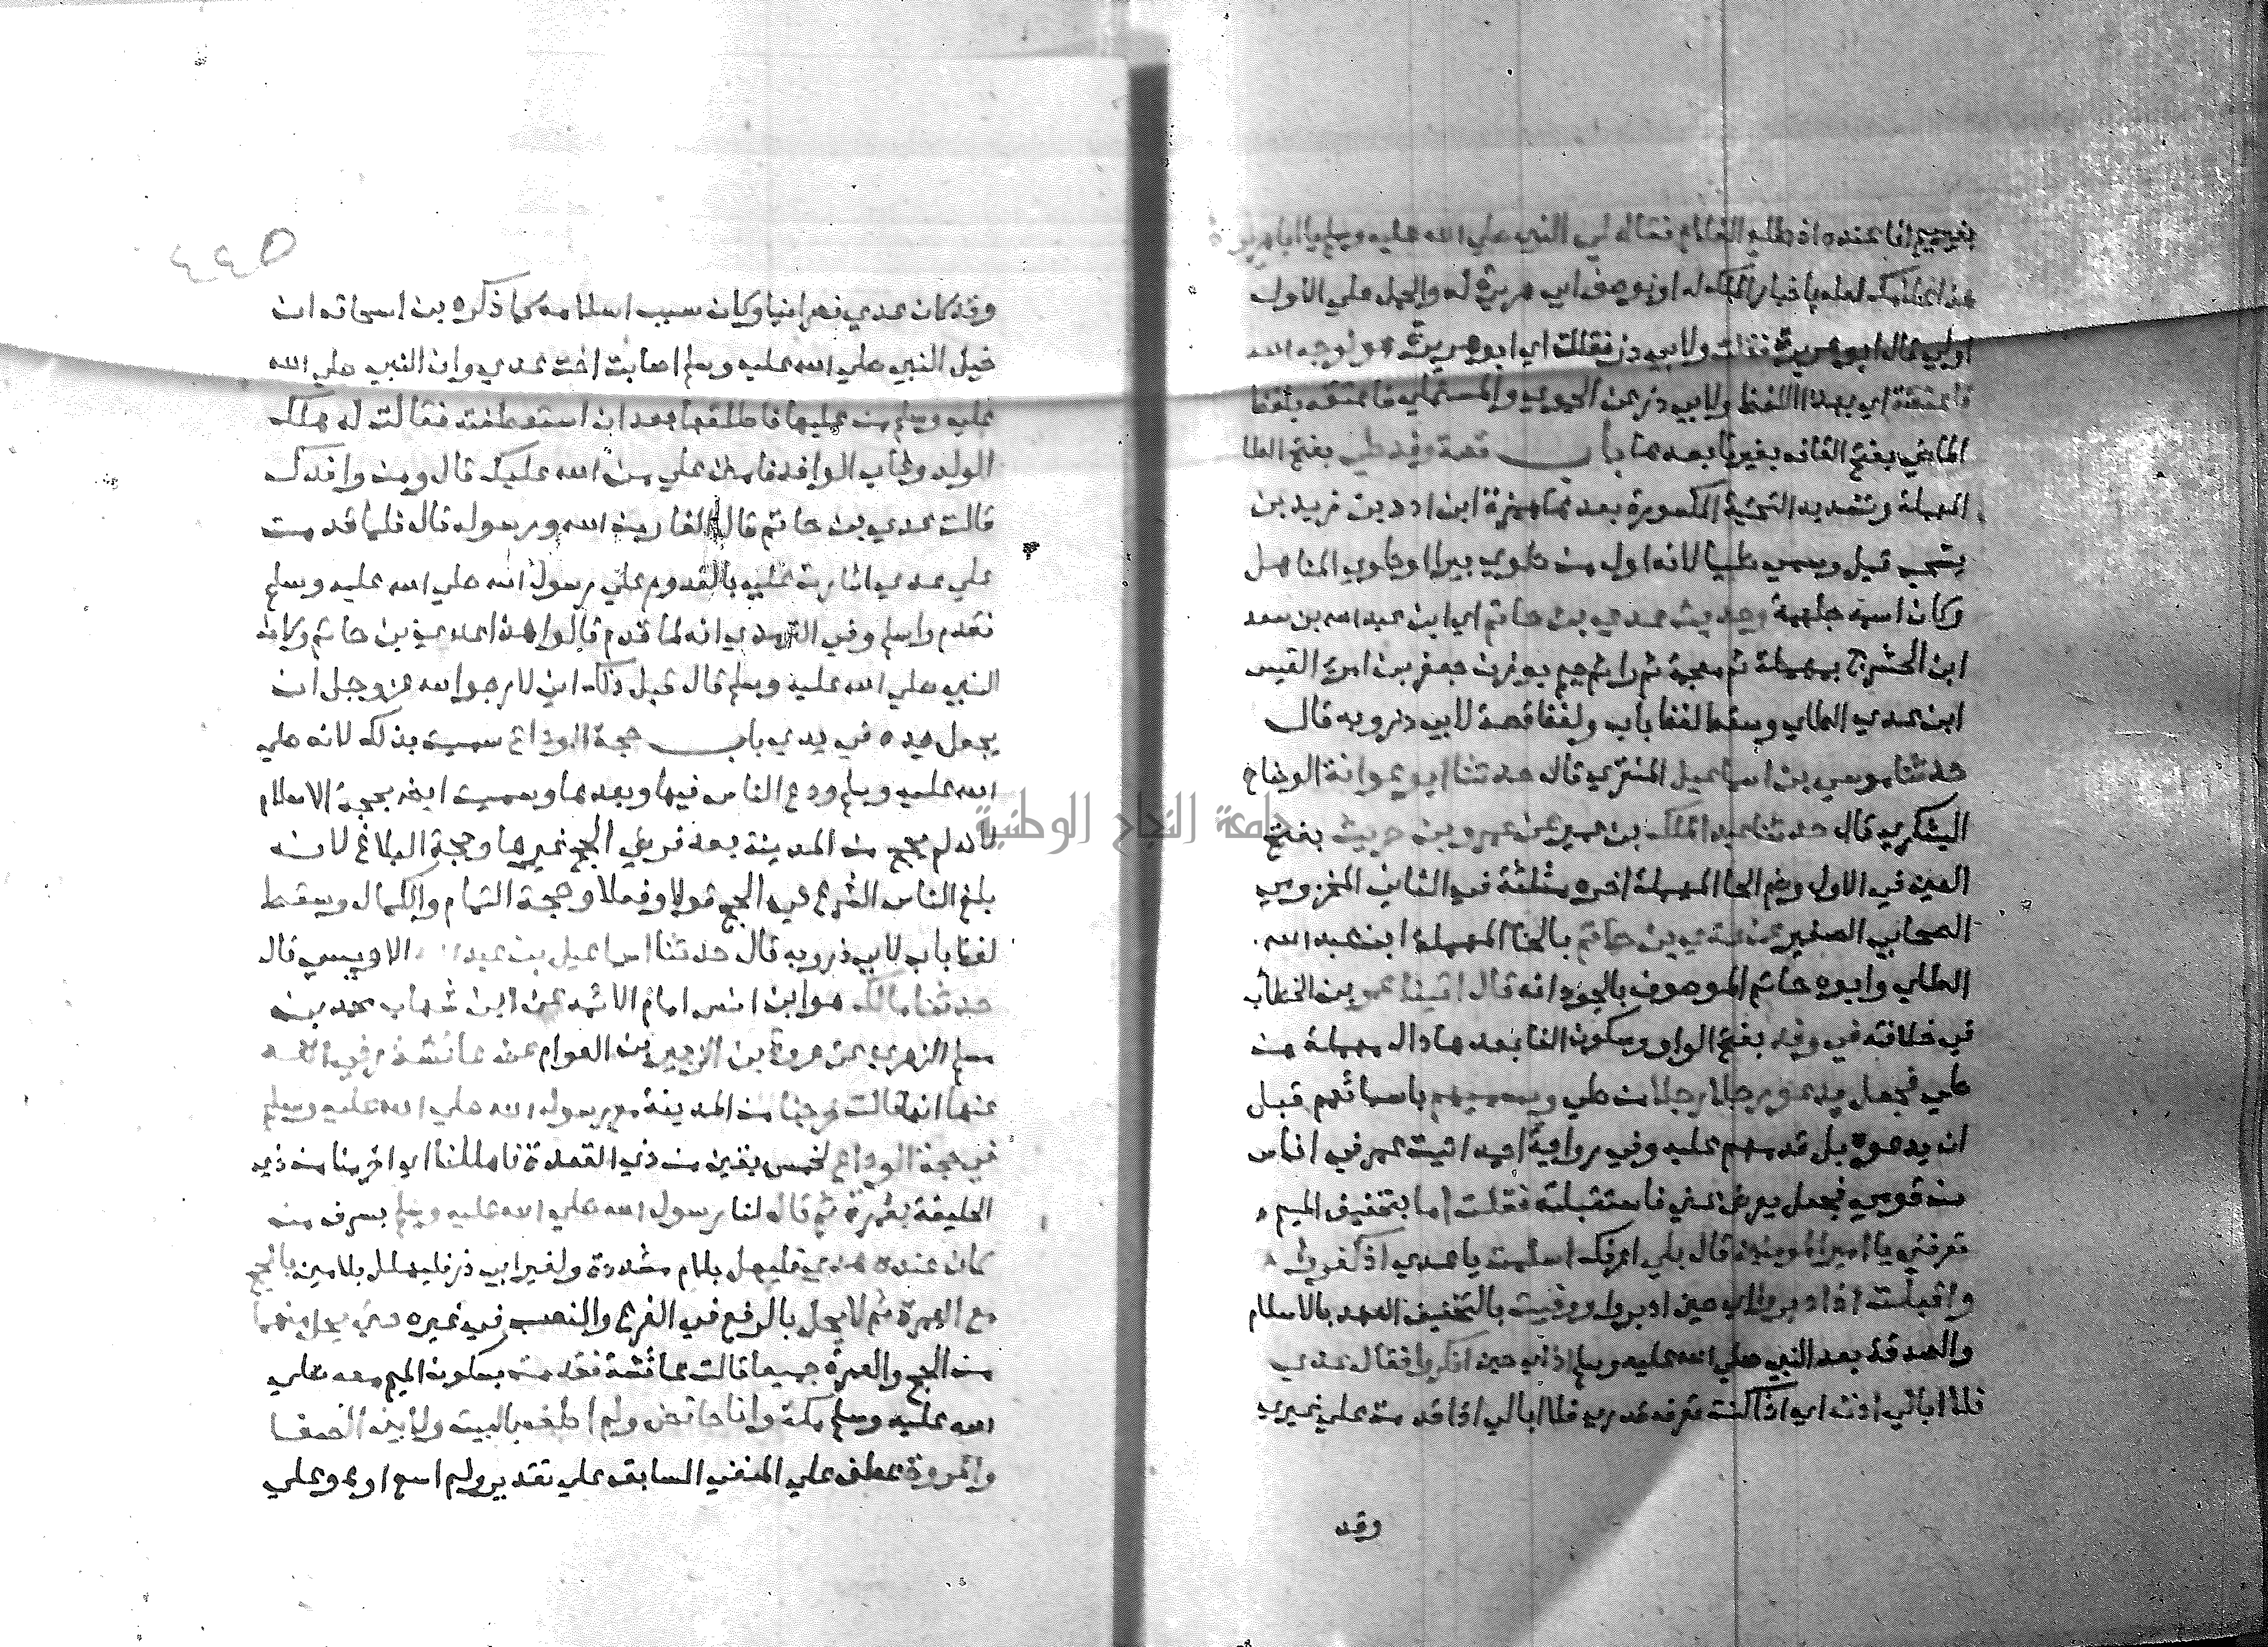 فبينا انا عنده اذ طلع الغلام فقال لي النبي صلي الله عليه وسلم يا ابا هريرة
هذا غلامك لعله باخبار الملك له او بوصف ابي هريرة له والحمل علي الاول
اولي قال ابو هريرة فقلت ولابي ذر فقال اي ابو هريرة هو لوجه الله
فاعتقته اي بهذا اللفظ ولابي ذر عن الحموي والمستملي فاعتقه بلفظ
الماضي بفتح القاف بغير تا بعدها باب قصة وفد طي بفتح الطا
المهملة وتشديد التحتية المكسورة بعدها همزة ابن ادد بن زيد بن
يشجب قيل وسمي طيا لانه اول من طوي بيرا او طوي المناهل
وكان اسمه جلهمة وحديث عدي بن حاتم اي ابن عبد الله بن سعد
ابن الحشرج بمهملة ثم معجمة ثم را ثم جيم بوزن جعفر بن امرئ القيس
ابن عدي الطاي وسقط لفظ باب ولفظ قصة لابي ذر وبه قال
حدثنا موسي بن اسماعيل المنقري قال حدثنا ابو عوانة الوضاح
اليشكري قال حدثنا عبد الملك بن عمير عن عمرو بن حريث بفتح
العين في الاول وضم الحا المهملة اخره مثلثة في الثاني المخزومي
الصحابي الصغير عن عدي بن حاتم بالحا المهملة ابن عبد الله
الطاي وابوه حاتم الموصوف بالجود انه قال اتينا عمر بن الخطاب
في خلافته في وفد بفتح الواو وسكون الفا بعدها دال مهملة من
طي فجعل يدعو رجلا رجلا من طي ويسميهم باسمائهم قبل
ان يدعوه بل قدمهم عليه وفي رواية احمد اتيت عمر في اناس
من قومي فجعل يعرض عني فاستقبلته فقلت اما بتخفيف الميم
تعرفني يا امير المومنين قال بلي اعرفك اسلمت يا عدي اذ كفروا
واقبلت اذ ادبروا اي حين ادبروا ووفيت بالتخفيف العهد بالاسلام
والصدقة بعد النبي صلي الله عليه وسلم اذ اي حين انكروا فقال عدي
فلا ابالي اذن اي اذا كنت تعرف قدري فلا ابالي اذا قدمت علي غيري
وقد
٤٤٥
وقد كان عدي نصرانيا وكان سبب اسلامه كما ذكره بن اسحاق ان
خيل النبي صلي الله عليه وسلم اصابت اخت عدي وان النبي صلي الله
عليه وسلم من عليها فاطلقها بعد ان استعطفته فقالت له هلك
الولد وغاب الوافد فامنن علي من الله عليك قال ومن وافدك
قالت عدي بن حاتم قال الفار من الله ورسوله قال فلما قدمت
علي عدي اشارت عليه بالقدوم علي رسول الله صلي الله عليه وسلم
فقدم واسلم وفي الترمذي انه لما قدم قالوا هذا عدي بن حاتم وكان
النبي صلي الله عليه وسلم قال قبل ذلك اني لارجو الله عز وجل ان
يجعل يده في يدي باب حجة الوداع سميت بذلك لانه صلي
الله عليه وسلم ودع الناس فيها وبعدها وسميت ايضا بحجة الاسلام
لانه لم يحج من المدينة بعد فرض الحج غيرها وحجة البلاغ لانه
بلغ الناس الشرع في الحج قولا وفعلا وحجة التمام والكمال وسقط
لفظ باب لابي ذر وبه قال حدثنا اسماعيل بن عبد الله الاويسي قال
حدثنا مالك هو ابن انس امام الائمة عن ابن شهاب محمد بن
مسلم الزهري عن عروة بن الزبير بن العوام عن عائشة رضي الله
عنها انها قالت خرجنا من المدينة مع رسول الله صلي الله عليه وسلم
في حجة الوداع لخمس بقين من ذي القعدة فاهللنا اي احرمنا من ذي
الحليفة بعمرة ثم قال لنا رسول الله صلي الله عليه وسلم بسرف من
كان عنده هدي فليهل بلام مشددة ولغير ابي ذر فليهلل بلامين بالحج
مع العمرة ثم لا يحل بالرفع في الفرع والنصب في غيره حتي يحل منهما
من الحج والعمرة جميعا قالت عائشة فقدمت بسكون الميم معه صلي
الله عليه وسلم مكة وانا حائض ولم اطف بالبيت ولا بين الصفا
والمروة عطف علي المنفي السابق علي تقدير ولم اسع او هو علي
جامعة النجاح الوطنية